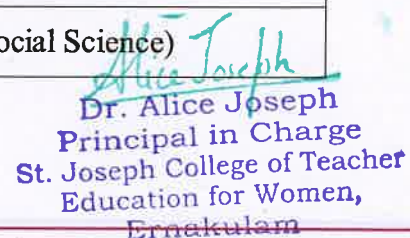 ocial Science)
Alice Joseph
Dr. Alice Joseph
Principal in Charge
St. Joseph College of Teacher
Education for Women,
Ernakulam